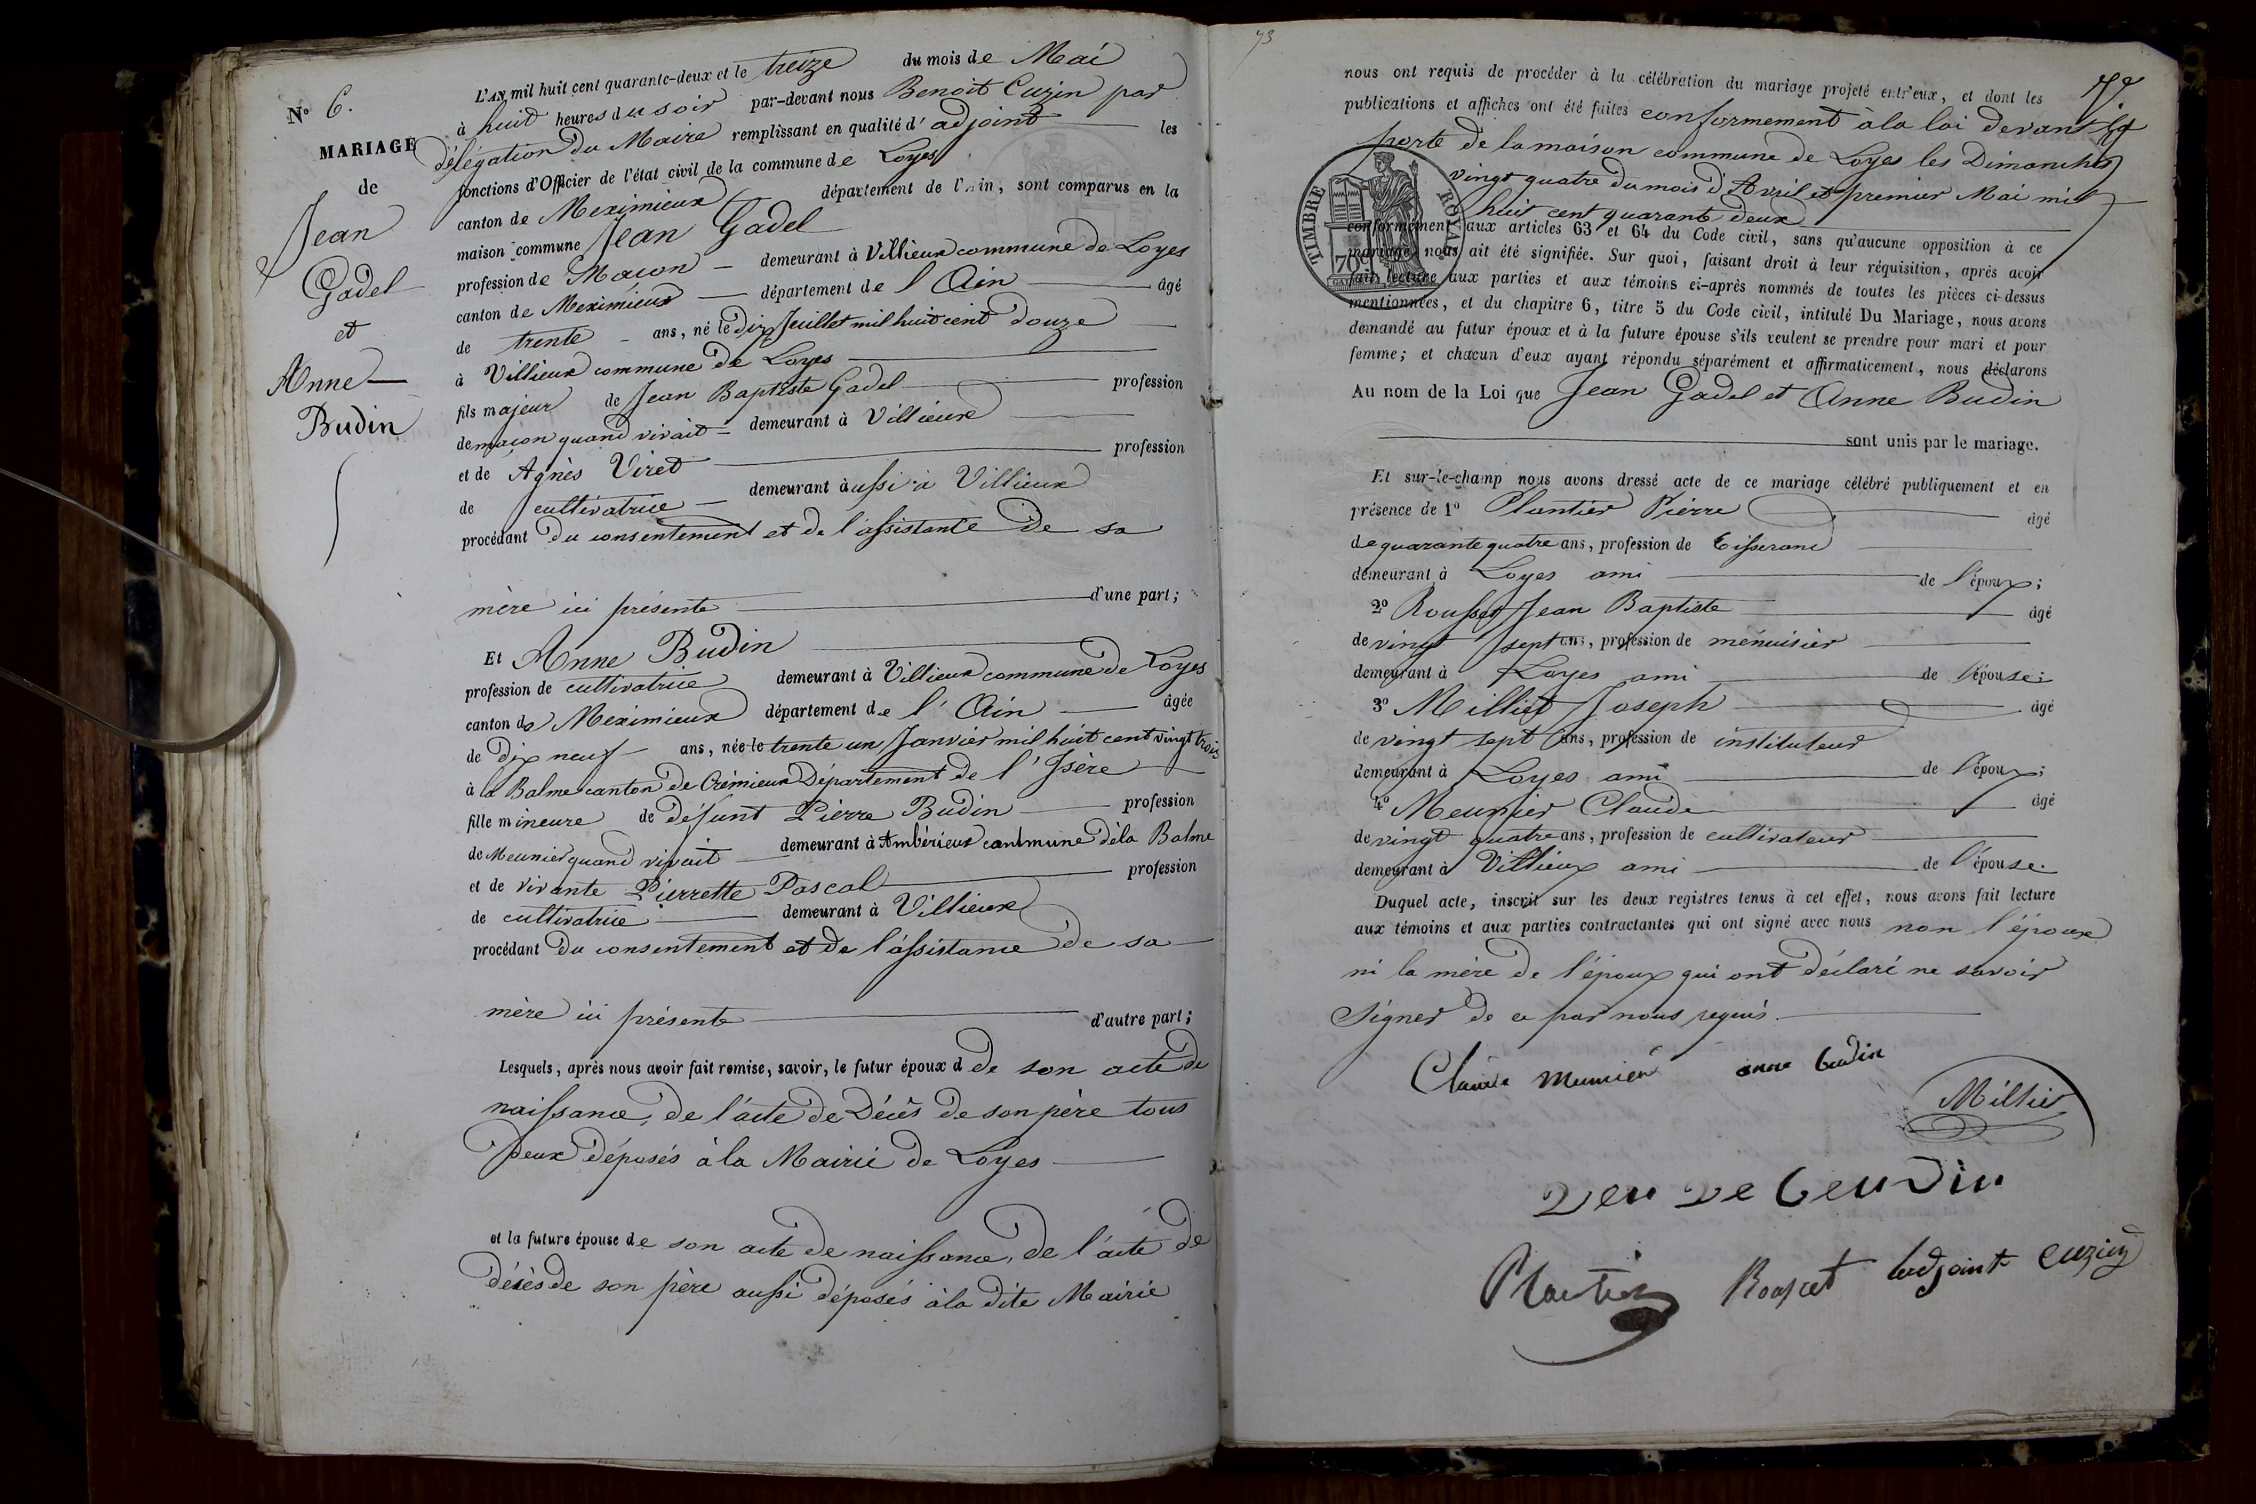 L'AN mil huit cent quarante-deux et le treize du mois de Mai
N° 6.
à huit heures du soir par-devant nous Benoit Cuzin par
MARIAGE
délégation du Maire remplissant en qualité d'adjoint les
de
fonctions d'Officier de l'état civil de la commune de Loyes
Jean
canton de Meximieux département de l'Ain, sont comparus en la
maison commune Jean Gadel
Gadel
profession de Macon demeurant à Villieux commune de Loyes
et
canton de Meximieux département de l'Ain âgé
Anne
de trente ans, né le dix Juillet mil huit cent douze
à Villieux commune de Loyes
Budin
fils majeur de Jean Baptiste Gadel profession
de macon quand vivait demeurant à Villieux
et de Agnès Viret profession
de cultivatrice demeurant aussi à Villieux
procédant du consentement et de l'assistante de sa
mère ici présente d'une part;
Et Anne Budin
profession de cultivatrice demeurant à Villieux commune de Loyes
canton de Meximieux département de l'Ain âgée
de dix neuf ans, née le trente un Janvier mil huit cent vingt trois
à la Balme canton de Crémieux Département de l'Isère
fille mineure de défunt Pierre Budin profession
de Meunier quand vivait demeurant à Ambérieux commune de la Balme
et de vivante Pierrette Pascal profession
de cultivatrice demeurant à Villieux
procédant du consentement et de l'assistance de sa
mère ici présente d'autre part;
Lesquels, après nous avoir fait remise, savoir, le futur époux d de son acte de
naissance, de l'acte de Décès de son père tous
deux déposés à la Mairie de Loyes
et la future épouse de son acte de naissance, de l'acte de
décès de son père aussi déposés à la dite Mairie
73
nous ont requis de procéder à la célébration du mariage projeté entr'eux, et dont les
publications et affiches ont été faites conformement à la loi devant la
porte de la maison commune de Loyes les Dimanches
vingt quatre du mois d'Avril et premier Mai mil
huit cent quarante deux
TIMBRE ROYAL
70
conformément aux articles 63 et 64 du Code civil, sans qu'aucune opposition à ce
mariage nous ait été signifiée. Sur quoi, faisant droit à leur réquisition, après avoir
fait lecture aux parties et aux témoins ci-après nommés de toutes les pièces ci-dessus
mentionnées, et du chapitre 6, titre 5 du Code civil, intitulé Du Mariage, nous avons
demandé au futur époux et à la future épouse s'ils veulent se prendre pour mari et pour
femme; et chacun d'eux ayant répondu séparément et affirmativement, nous déclarons
Au nom de la Loi que Jean Gadel et Anne Budin
sont unis par le mariage.
Et sur-le-champ nous avons dressé acte de ce mariage célébré publiquement et en
présence de 1° Plantier Pierre âgé
de quarante quatre ans, profession de Tisserand
demeurant à Loyes ami de l'époux;
2° Rousset Jean Baptiste âgé
de vingt sept ans, profession de menuisier
demeurant à Loyes ami de l'épouse;
3° Milliet Joseph âgé
de vingt sept ans, profession de instituteur
demeurant à Loyes ami de l'époux;
4° Meunier Claude âgé
de vingt quatre ans, profession de cultivateur
demeurant à Villieux ami de l'épouse
Duquel acte, inscrit sur les deux registres tenus à cet effet, nous avons fait lecture
aux témoins et aux parties contractantes qui ont signé avec nous non l'époux
ni la mère de l'époux qui ont déclaré ne savoir
signer de ce par nous requis.
Claude Munier anne budin
Milliet
veuve beudin
Plantier Rousset adjoint Cuzin